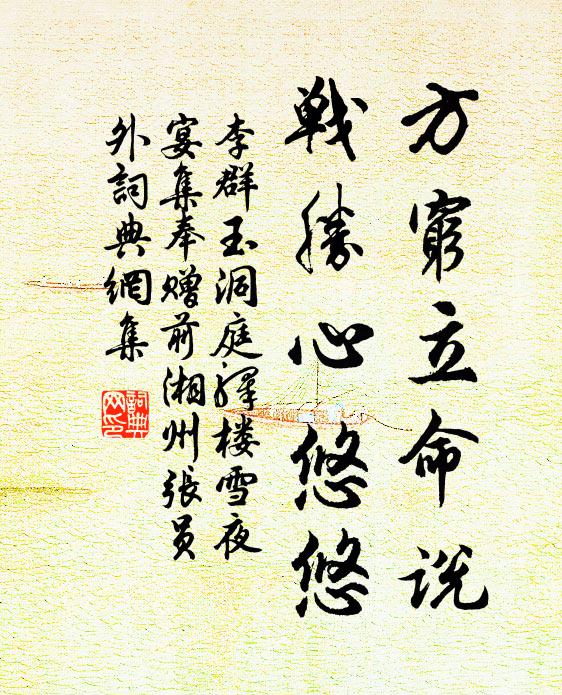 方窮立命說
戰勝心悠悠
李群玉洞庭驛楼雪夜
宴集奉赠前湘州張员
外詞典網集
詞典
网印